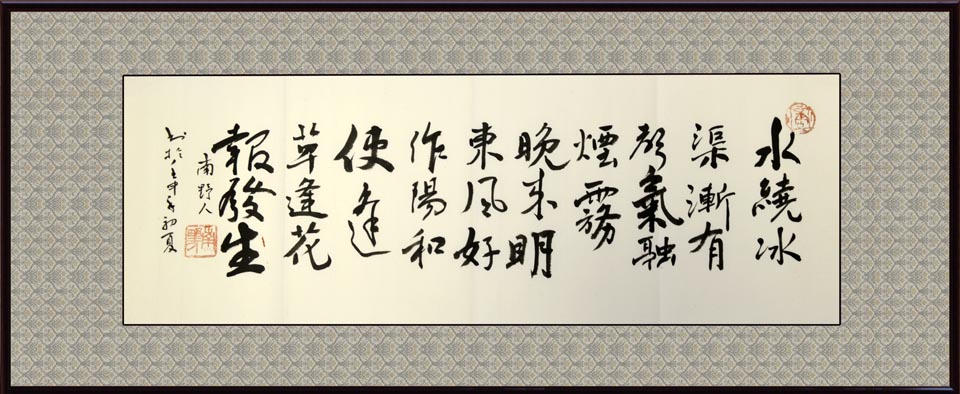 水繞冰
渠漸有
聲氣融
煙霧
晚來明
東風好
作陽和
使逢
草逢花
報發生
南野人
书於壬午年初夏